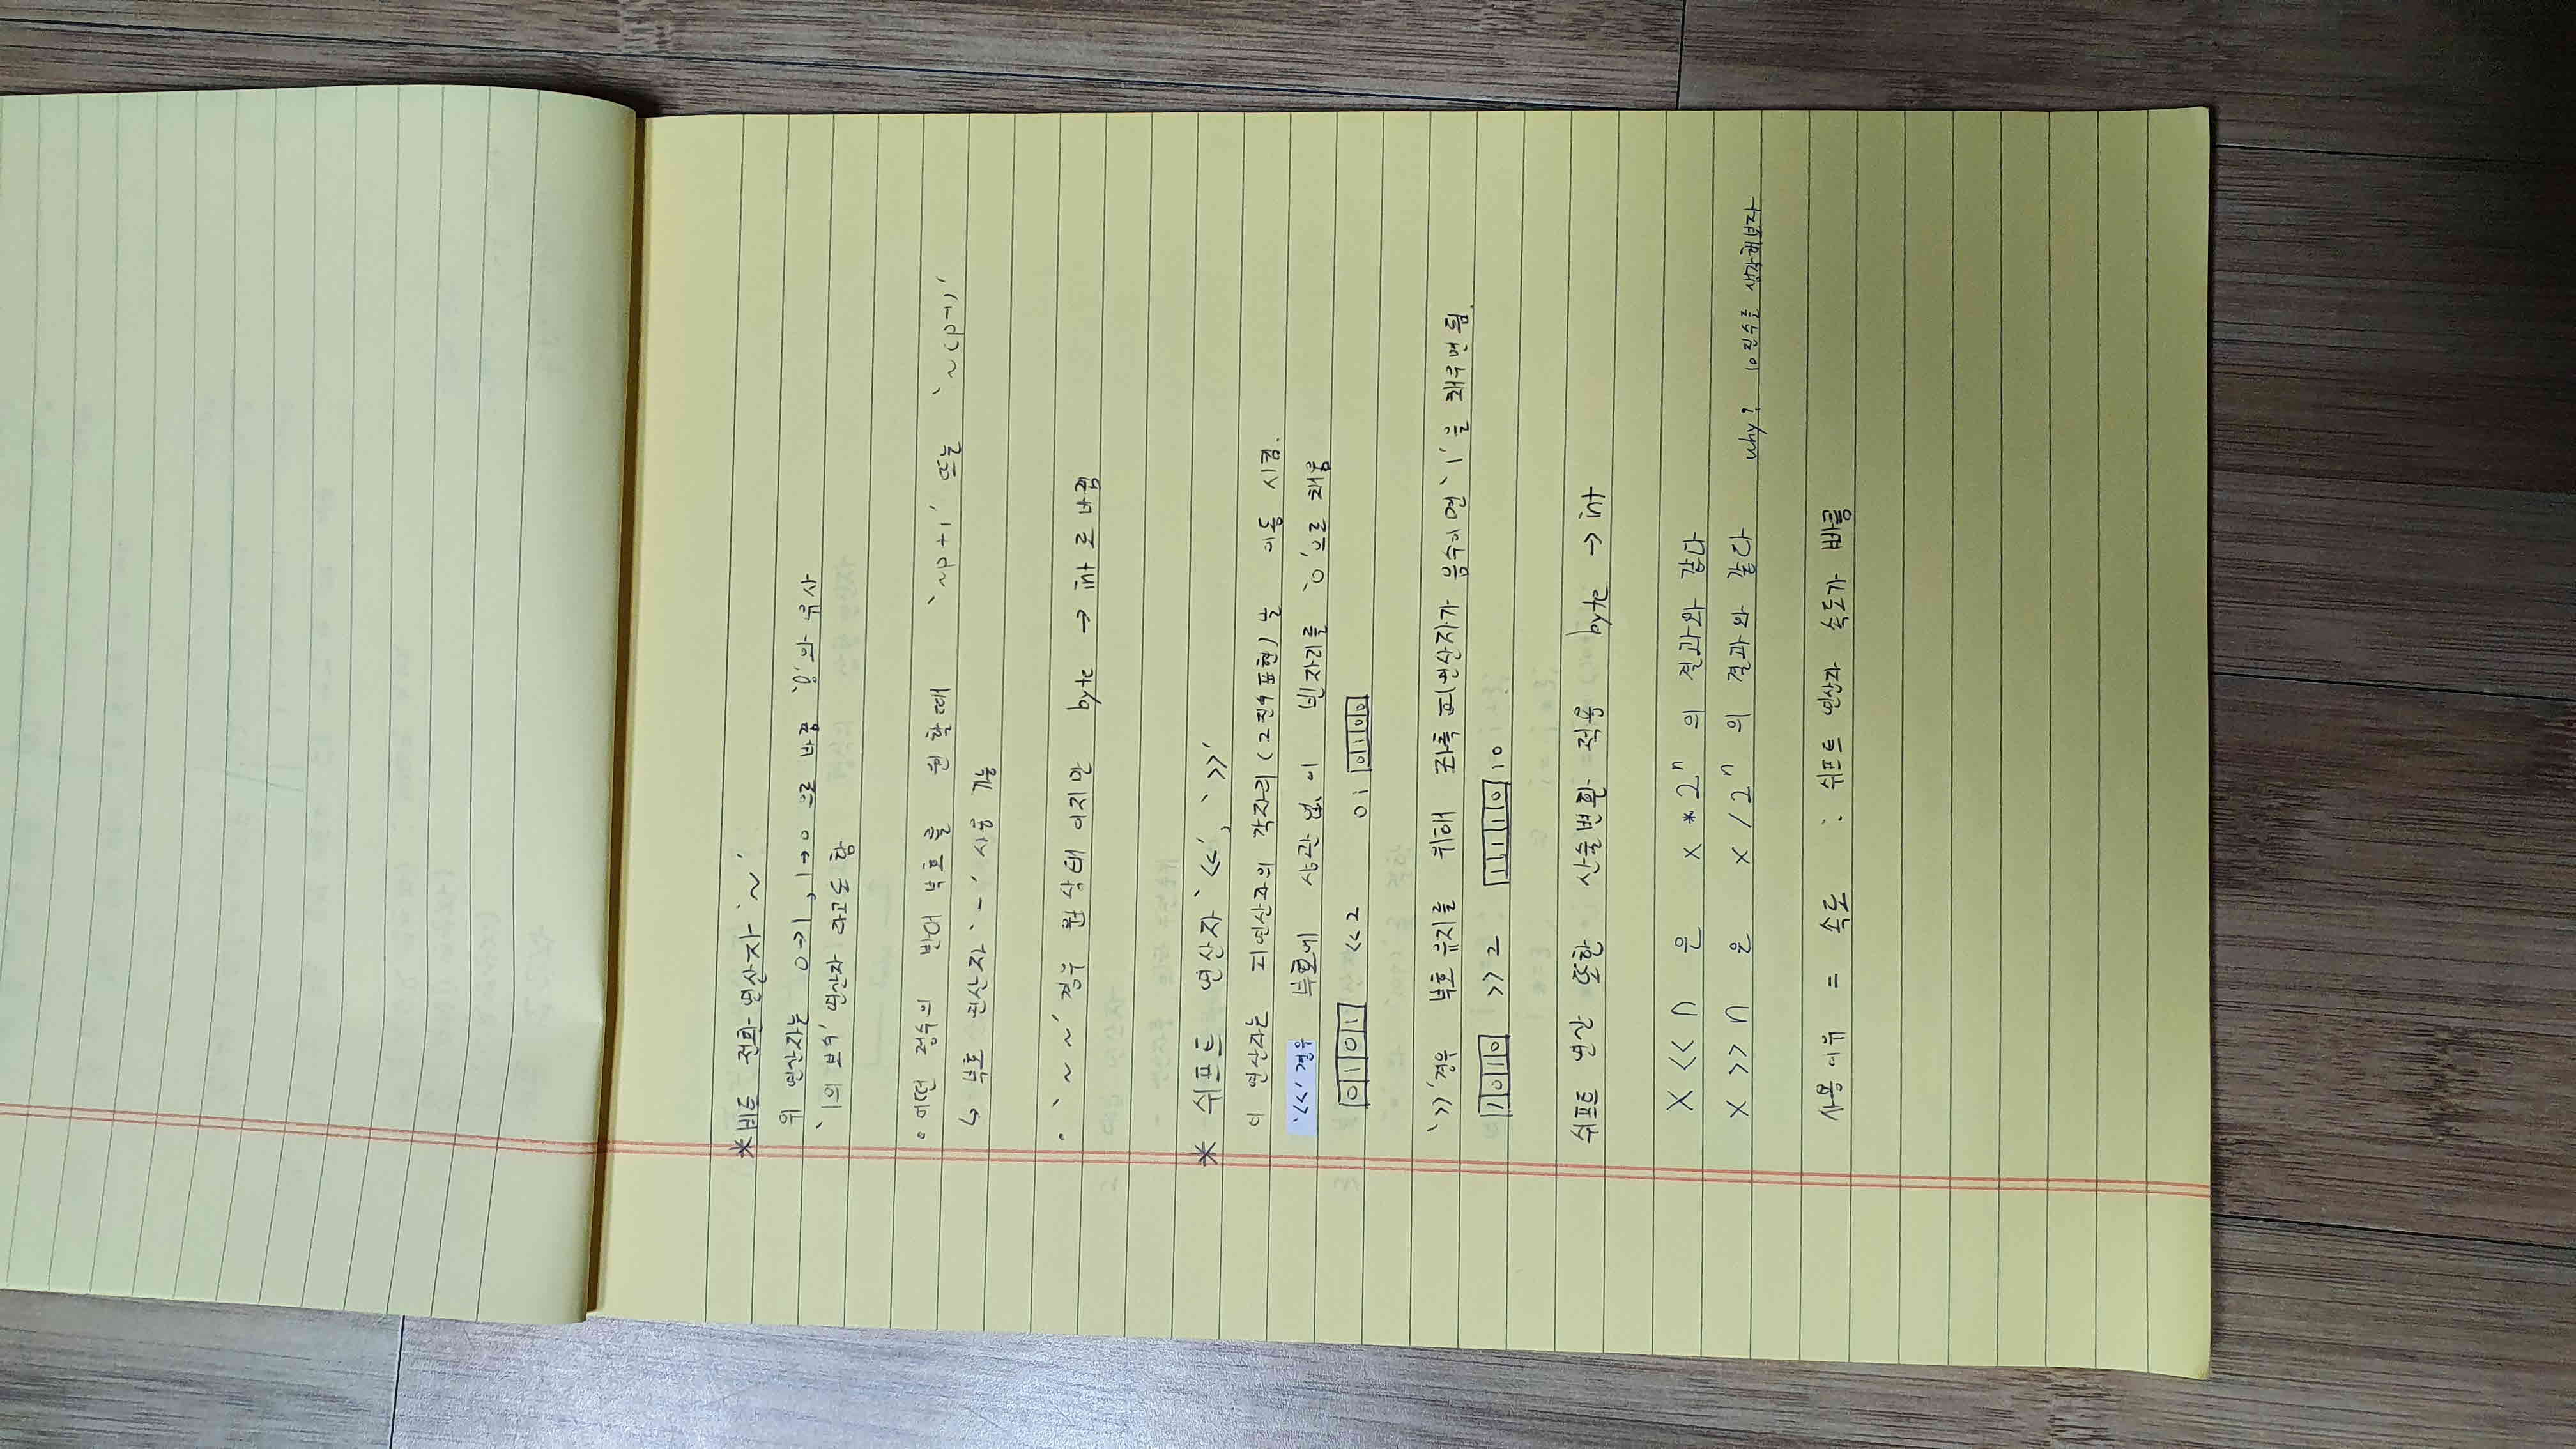 * 비트 전환 연산자 `~'
위 연산자는 0→1, 1→0 으로 바꿈 `!'와 유사
`1의 보수' 연산자 라고도 함
• 어떤 정수의 반대 부호를 원할때 `~p+1' 또는 `~(p-1)'
↳ 부호 연산자 `-' 사용 가능
• `~~' 경우 원상태 이지만 byte → int 로 바뀜
* 쉬프트 연산자 `<<', `>>'
이 연산자는 피연산자의 각자리 (2진수 표현) 를 이동 시킴.
`<<' 경우 부호에 상관 없이 빈자리를 `0'으로 채움
0101 <<2 01 0100
`>>' 경우 부호 유지를 위해 좌측 피연산자가 음수이면 `1'을 채우면 됨.
1010 >>2 1110 10
쉬프트 연산 또한 산술변환 적용 byte → int
x << n 은 x * 2ⁿ 의 결과와 같다
x >> n 은 x / 2ⁿ 의 결과와 같다 why? 10진수를 생각해보자
사용이유 = 속도 : 쉬프트 연산자 속도가 빠름